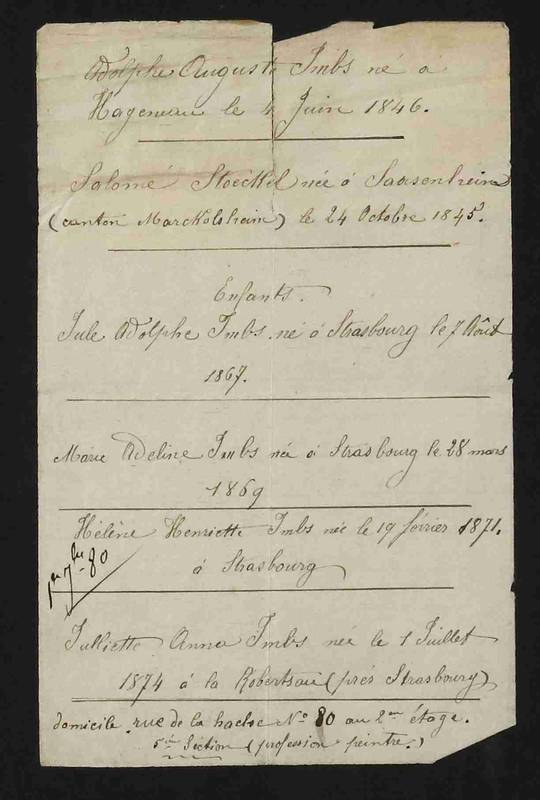 Adolphe Auguste Imbs né a
Hagenau le 4 Juin 1846.
Salomé Stoëckel née à Saasenheim
(canton Marckolsheim) le 24 Octobre 1845.
Enfants.
Jule Adolphe Imbs né à Strasbourg le 7 Août
1867.
Marie Adeline Imbs née à Strasbourg le 28 mars
1869
Hélène Henriette Imbs née le 19 février 1871.
à Strasbourg
1er 7bre 80
Julliette Anna Imbs née le 1 Juillet
1874 à la Robertsau (près Strasbourg)
domicile rue de la hache No 80 au 2me étage.
5ème Section (profession peintre.)